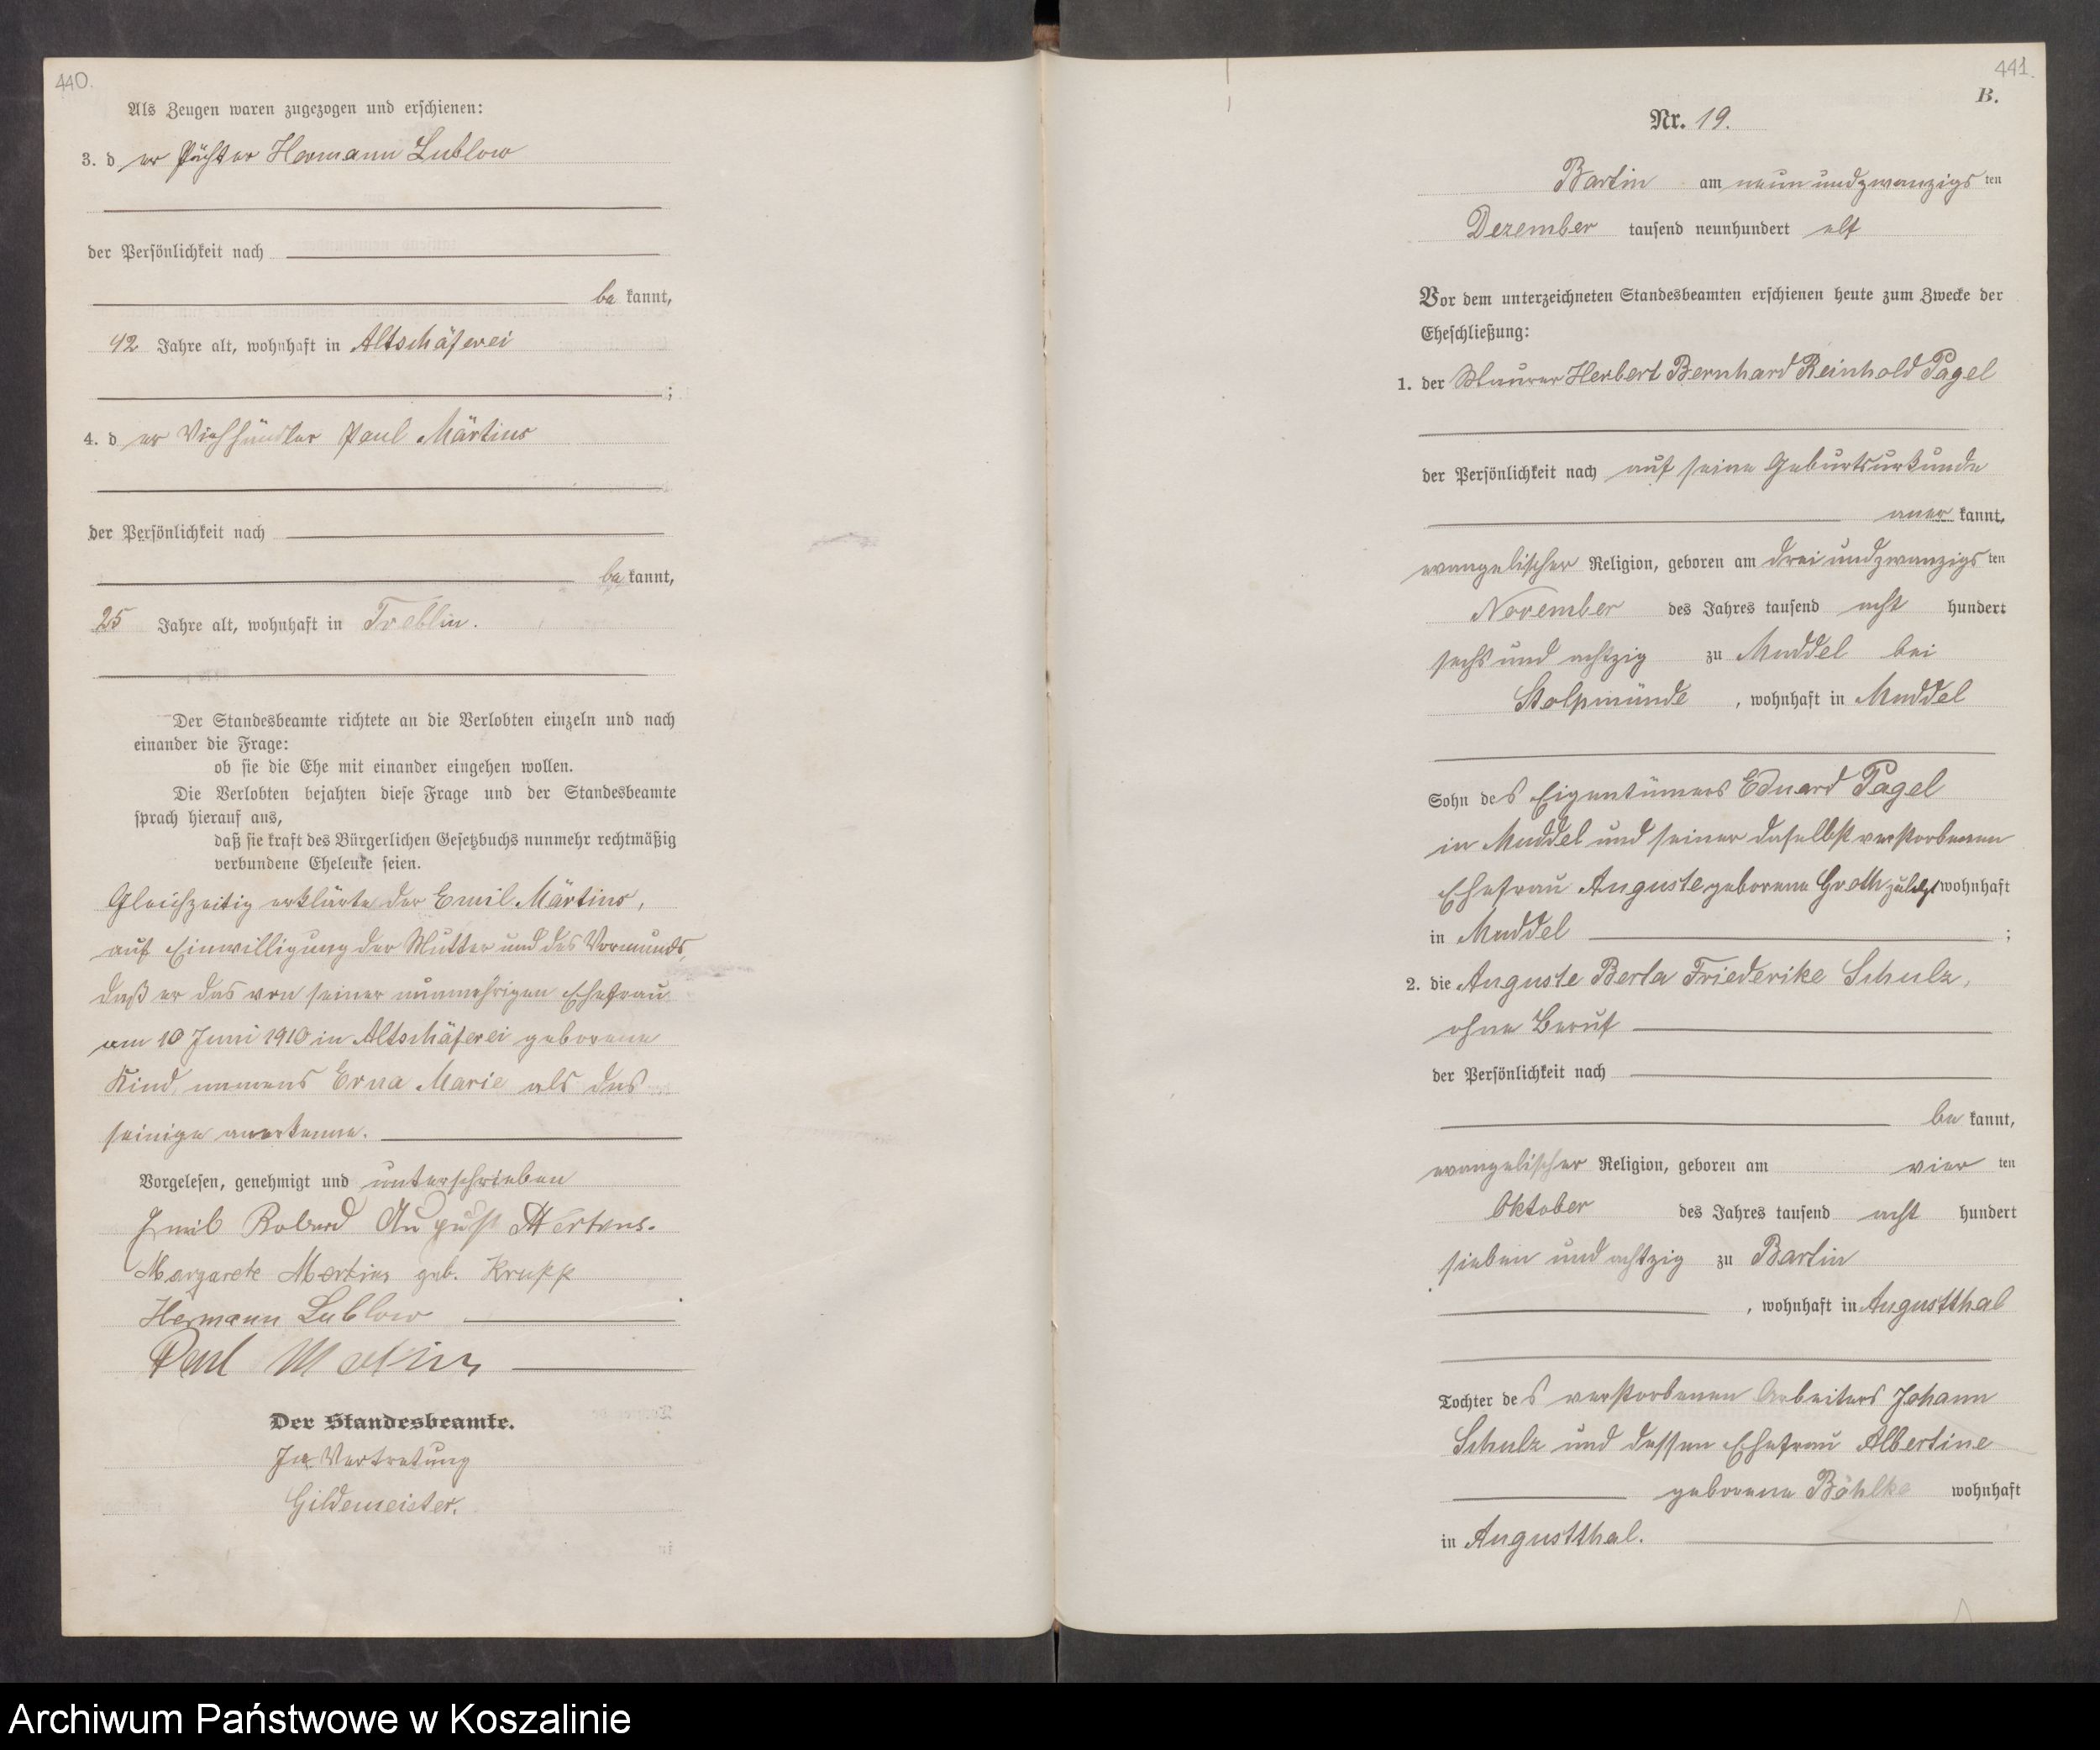 440.
Als Zeugen waren zugezogen und erschienen:
3. der Pächter Hermann Lublow
der Persönlichkeit nach
bekannt,
42 Jahre alt, wohnhaft in Altschäferei
;
4. der Viehhändler Paul Märtins
der Persönlichkeit nach
bekannt,
25 Jahre alt, wohnhaft in Treblin.
Der Standesbeamte richtete an die Verlobten einzeln und nach
einander die Frage:
ob sie die Ehe mit einander eingehen wollen.
Die Verlobten bejahten diese Frage und der Standesbeamte
sprach hierauf aus,
daß sie kraft des Bürgerlichen Gesetzbuchs nunmehr rechtmäßig
verbundene Eheleute seien.
Gleichzeitig erklärte der Emil Märtins,
auf Einwilligung der Mutter und des Vormunds,
daß er das von seiner nunmehrigen Ehefrau
am 10 Juni 1910 in Altschäferei geborene
Kind, namens Erna Marie als das
seinige anerkenne.
Vorgelesen, genehmigt und unterschrieben
Emil August
Margarete geb. Krupp
Hermann Lublow
Paul
Der Standesbeamte.
In Vertretung
Gildemeister.
441.
B.
Nr. 19.
Bartin am neunundzwanzigsten
Dezember tausend neunhundert elf
Vor dem unterzeichneten Standesbeamten erschienen heute zum Zwecke der
Eheschließung:
1. der Maurer Herbert Bernhard Reinhold Pagel
der Persönlichkeit nach auf seine Geburtsurkunde
anerkannt,
evangelischer Religion, geboren am dreiundzwanzigsten
November des Jahres tausend acht hundert
sechs und achtzig zu Muddel bei
Stolpmünde, wohnhaft in Muddel
Sohn des Eigentümers Eduard Pagel
in Muddel und seiner daselbst verstorbenen
Ehefrau Auguste geborene Groth zuletzt wohnhaft
in Muddel ;
2. die Auguste Berta Friederike Schulz,
ohne Beruf
der Persönlichkeit nach
bekannt,
evangelischer Religion, geboren am vierten
Oktober des Jahres tausend acht hundert
sieben und achtzig zu Bartin
, wohnhaft in Augustthal
Tochter des verstorbenen Arbeiters Johann
Schulz und dessen Ehefrau Albertine
geborene Böhlke wohnhaft
in Augustthal.
Archiwum Państwowe w Koszalinie